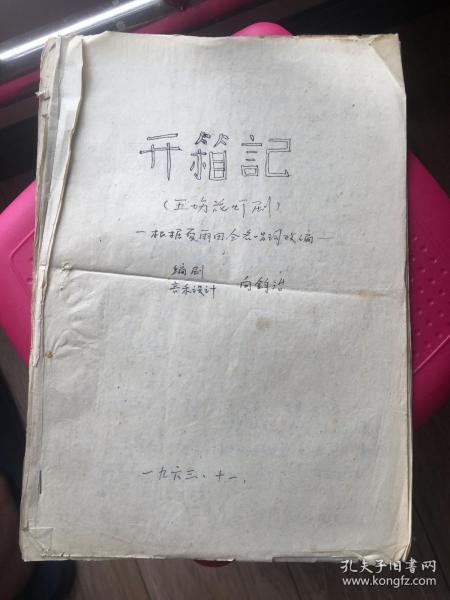 开箱記
（五场花灯剧）
—根据夏雨田合宗唱词改编—
编剧
音乐设计 向
一九六三、十一、
孔夫子旧书网
www.kongfz.com